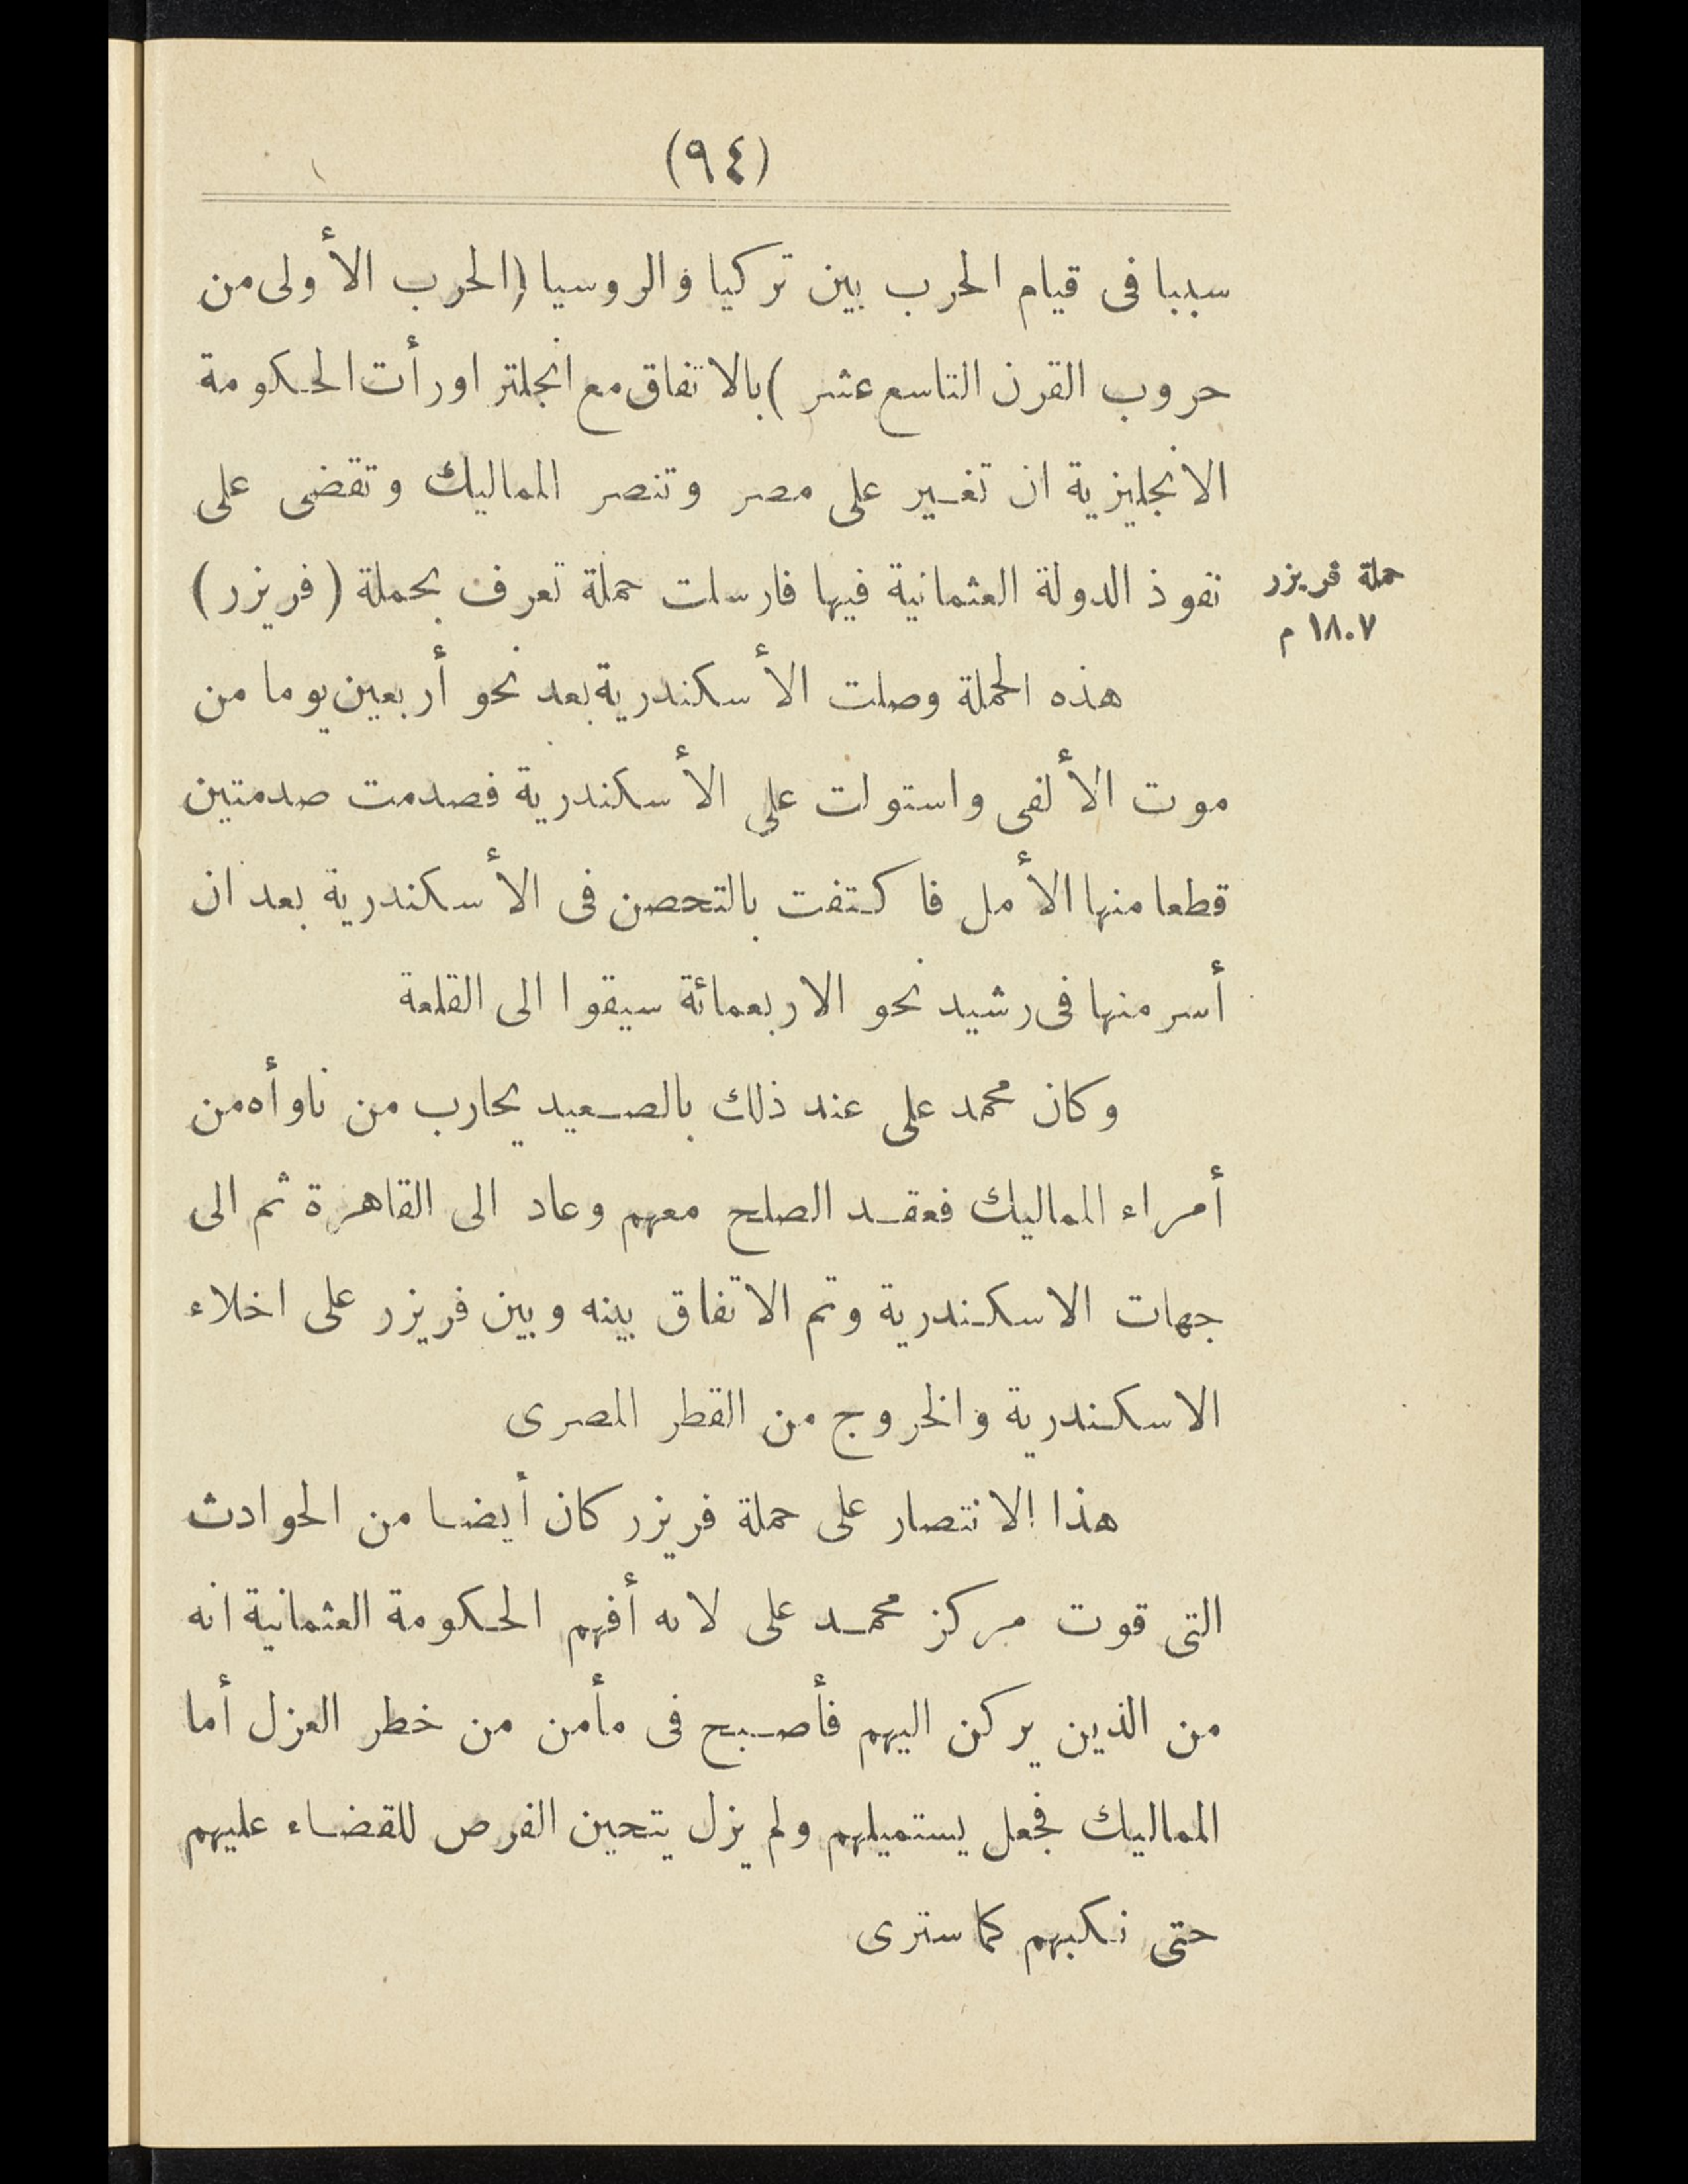 (٩٤)
سببا فى قيام الحرب بين تركيا والروسيا (الحرب الأولى من
حروب القرن التاسع عشر) بالاتفاق مع انجلترا ورأت الحكومة
الانجليزية ان تغير على مصر وتنصر المماليك وتقضى على
نفوذ الدولة العثمانية فيها فارسلت حملة تعرف بحملة (فريزر)
حملة فريزر
١٨٠٧ م
هذه الحملة وصلت الأسكندرية بعد نحو أربعين يوما من
موت الألفى واستولت على الأسكندرية فصدمت صدمتين
قطعا منها الأمل فاكتفت بالتحصن فى الأسكندرية بعد ان
أسر منها فى رشيد نحو الاربعمائة سيقوا الى القلعة
وكان محمد على عند ذلك بالصعيد يحارب من ناوأه من
أمراء المماليك فعقد الصلح معهم وعاد الى القاهرة ثم الى
جهات الاسكندرية وتم الاتفاق بينه وبين فريزر على اخلاء
الاسكندرية والخروج من القطر المصرى
هذا الانتصار على حملة فريزر كان أيضا من الحوادث
التى قوت مركز محمد على لانه أفهم الحكومة العثمانية انه
من الذين يركن اليهم فأصبح فى مأمن من خطر العزل أما
المماليك فجعل يستميلهم ولم يزل يتحين الفرص للقضاء عليهم
حتى نكبهم كما سترى